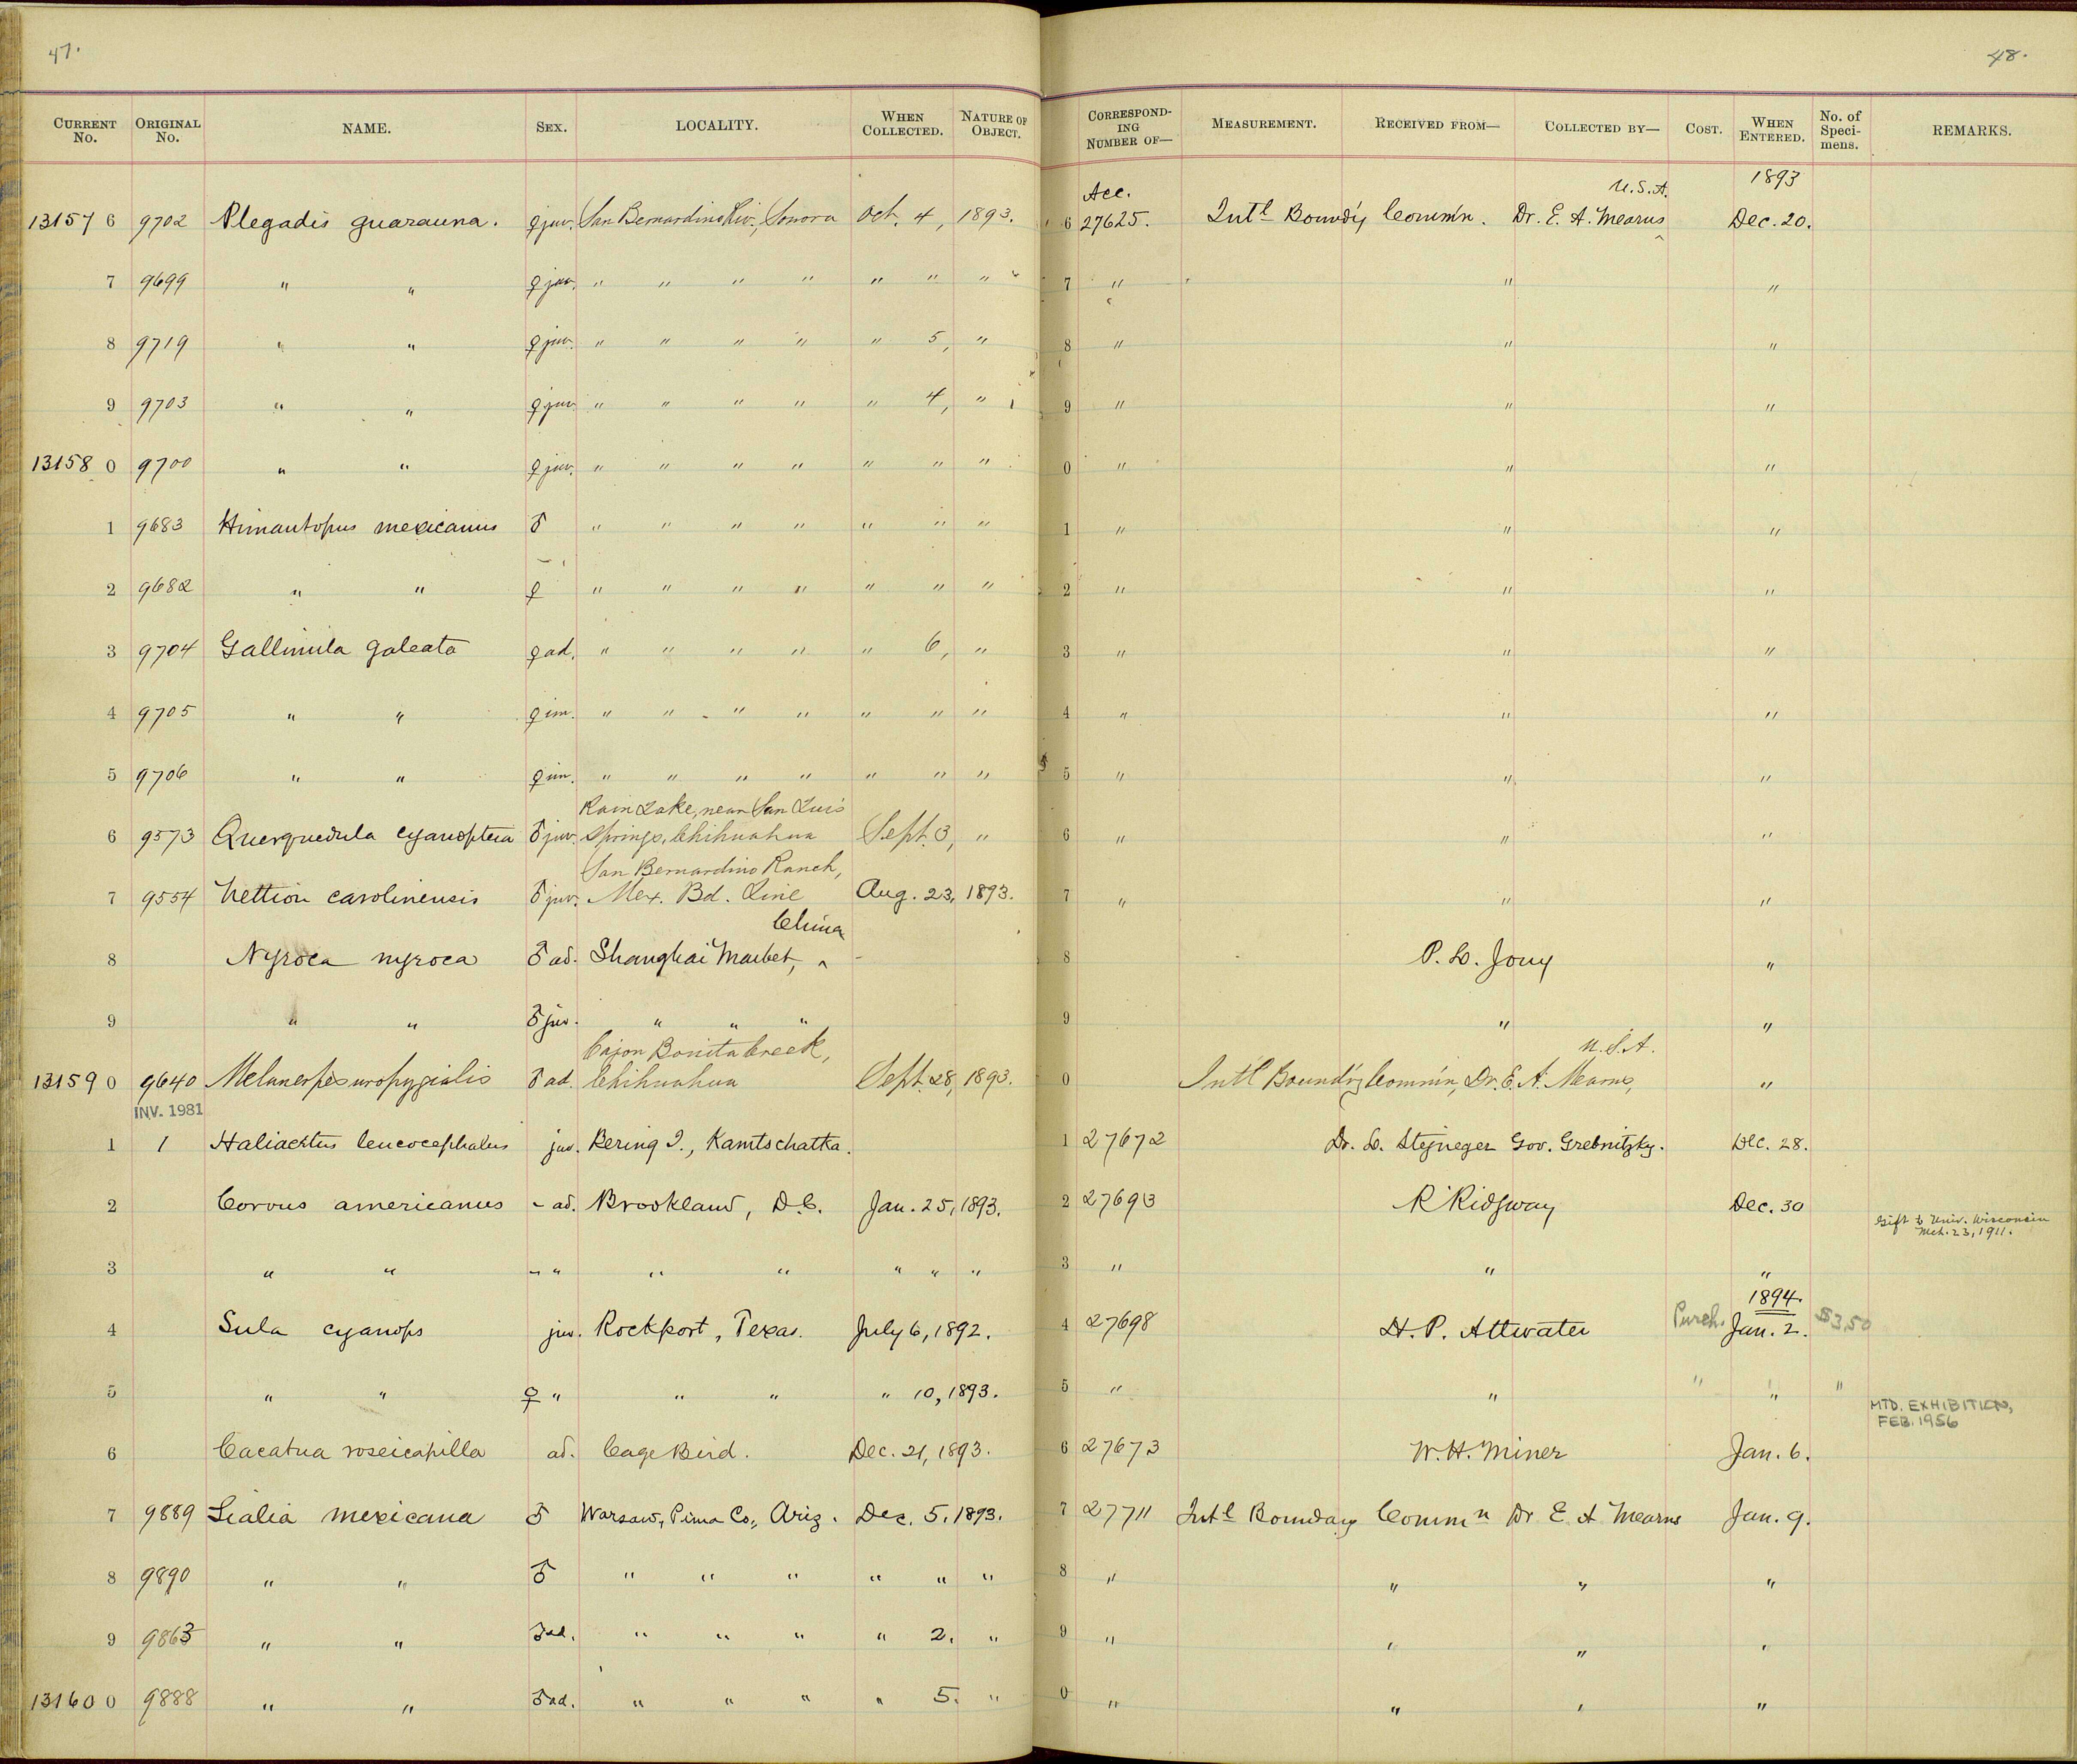 47.
CURRENT No. ORIGINAL No. NAME. SEX. LOCALITY. WHEN COLLECTED. NATURE OF OBJECT.
13157 6 9702 Plegadis guarauna. ♀ juv. San Bernardino Riv., Sonora Oct. 4, 1893.
7 9699 " " ♀ juv. " " " " " " "
8 9719 " " ♀ juv. " " " " " 5, "
9 9703 " " ♀ juv. " " " " " 4, "
13158 0 9700 " " ♀ juv. " " " " " " "
1 9683 Himantopus mexicanus ♂ " " " " " " "
2 9682 " " ♀ " " " " " " "
3 9704 Gallinula galeata ♀ ad. " " " " " 6, "
4 9705 " " ♀ im. " " " " " " "
5 9706 " " ♀ im. " " " " " " "
Rain Lake, near San Luis
6 9573 Querquedula cyanoptera ♂ juv. Springs, Chihuahua Sept. 3, "
San Bernardino Ranch,
7 9554 Nettion carolinensis ♂ juv. Mex. Bd. Line Aug. 23, 1893.
China
8 Nyroca nyroca ♂ ad. Shanghai Market, ^
9 " " ♂ juv. " " "
Cajon Bonita Creek,
13159 0 9640 Melanerpes uropygialis ♂ ad. Chihuahua Sept. 28, 1893.
INV. 1981
1 1 Haliaetus leucocephalus juv. Bering I., Kamtschatka.
2 Corvus americanus - ad. Brookland, D.C. Jan. 25, 1893.
3 " " - " " " " " "
4 Sula cyanops juv. Rockport, Texas. July 6, 1892.
5 " " ♀ " " " " 10, 1893.
6 Cacatua roseicapilla ad. Cage Bird. Dec. 21, 1893.
7 9889 Sialia mexicana ♂ Warsaw, Pima Co., Ariz. Dec. 5. 1893.
8 9890 " " ♂ " " " " " "
9 9863 " " ♂ ad. " " " " 2. "
13160 0 9888 " " ♂ ad. " " " " 5. "
48.
CORRESPONDING NUMBER OF— MEASUREMENT. RECEIVED FROM— COLLECTED BY— COST. WHEN ENTERED. No. of Specimens. REMARKS.
Acc. U.S.A. 1893
6 27625. Intl Bound'y Comm'n. Dr. E. A. Mearns ^ Dec. 20.
7 " " "
8 " " "
9 " " "
0 " " "
1 " " "
2 " " "
3 " " "
4 " " "
5 " " "
6 " " "
7 " " "
8 P. L. Jouy "
9 " "
U.S.A.
0 Intl Bound'y Comm'n, Dr. E. A. Mearns, "
1 27672 Dr. L. Stejneger Gov. Grebnitzky. Dec. 28.
2 27693 R Ridgway Dec. 30
Gift to Univ. Wisconsin
Mch. 23, 1911.
3 " " "
1894.
4 27698 H. P. Attwater Purch. Jan. 2. $3.50
5 " " " " "
MTD. EXHIBITION,
FEB. 1956
6 27673 W. H. Miner Jan. 6.
7 27711 Intl Boundary Commn Dr E A Mearns Jan. 9.
8 " " " "
9 " " " "
0 " " " "